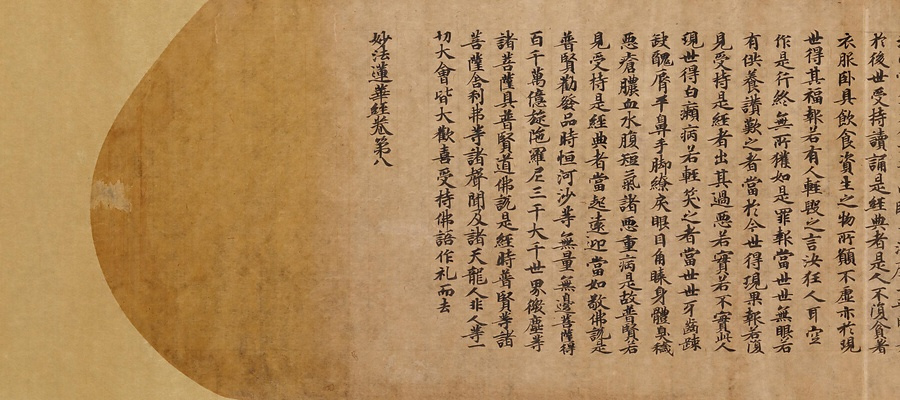 於後世受持讀誦是經典者是人不復貪著
衣服臥具飲食資生之物所願不虛亦於現
世得其福報若有人輕毀之言汝狂人耳空
作是行終無所獲如是罪報當世世無眼若
有供養讚歎之者當於今世得現果報若復
見受持是經者出其過惡若實若不實此人
現世得白癩病若輕笑之者當世世牙齒踈
缺醜脣平鼻手脚繚戾眼目角睞身體臭穢
惡瘡膿血水腹短氣諸惡重病是故普賢若
見受持是經典者當起遠迎當如敬佛說是
普賢勸發品時恒河沙等無量無邊菩薩得
百千萬億旋陁羅尼三千大千世界微塵等
諸菩薩具普賢道佛說是經時普賢等諸
菩薩舍利弗等諸聲聞及諸天龍人非人等一
切大會皆大歡喜受持佛語作礼而去
妙法蓮華經卷第八